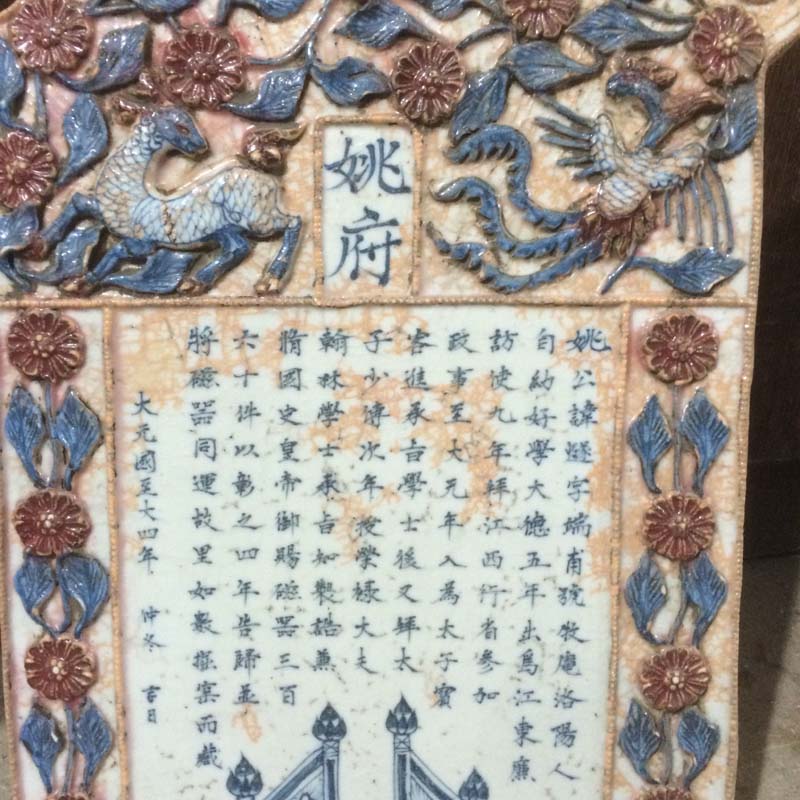 姚府
姚公諱燧字端甫號牧庵洛陽人
自幼好學大德五年出爲江東廉
訪使九年拜江西行省參知
政事至大元年入為太子賓
客進承旨學士後又拜太
子少傅次年授榮祿大夫
翰林學士承旨知製誥兼
脩國史皇帝御賜磁器三百
六十件以彰之四年告歸並
將磁器同運故里如數推窯而藏
大元國至大四年 仲冬 吉日